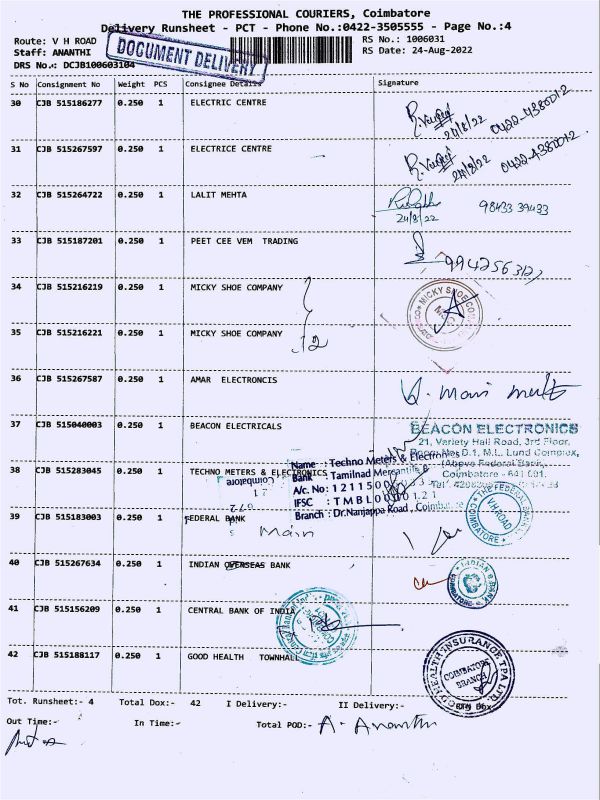 THE PROFESSIONAL COURIERS, Coimbatore
Delivery Runsheet - PCT - Phone No.:0422-3505555 - Page No.:4
Route: V H ROAD
RS No.: 1006031
Staff: ANANTHI
RS Date: 24-Aug-2022
DRS No.: DCJB100603104
DOCUMENT DELIVERY
S No Consignment No Weight PCS Consignee Details Signature
30 CJB 515186277 0.250 1 ELECTRIC CENTRE
24/8/22 0422-4380012
31 CJB 515267597 0.250 1 ELECTRICE CENTRE
24/8/22 0422-4380012
32 CJB 515264722 0.250 1 LALIT MEHTA
24/8/22 98433 39433
33 CJB 515187201 0.250 1 PEET CEE VEM TRADING
34 CJB 515216219 0.250 1 MICKY SHOE COMPANY
MICKY SHOE CO
35 CJB 515216221 0.250 1 MICKY SHOE COMPANY
12
36 CJB 515267587 0.250 1 AMAR ELECTRONCIS
37 CJB 515040003 0.250 1 BEACON ELECTRICALS
BEACON ELECTRONICS
21, Variety Hall Road, 3rd Floor,
Room No. D.1, M.L. Lund Complex,
(Above Federal Bank,
Coimbatore - 641 001.
38 CJB 515283045 0.250 1 TECHNO METERS & ELECTRONICS
Name : Techno Meters & Electronics
Bank : Tamilnad Mercantile B
A/c. No: 1211500
IFSC : TMBL0000121
Branch : Dr.Nanjappa Road, Coimbatore
Coimbatore
39 CJB 515183003 0.250 1 FEDERAL BANK
Main
THE FEDERAL BANK
VH ROAD
COIMBATORE
40 CJB 515267634 0.250 1 INDIAN OVERSEAS BANK
41 CJB 515156209 0.250 1 CENTRAL BANK OF INDIA
42 CJB 515188117 0.250 1 GOOD HEALTH TOWNHALL
HEALTH INSURANCE TPA LTD
COIMBATORE
BRANCH
Tot. Runsheet:- 4 Total Dox:- 42 I Delivery:- II Delivery:-
Out Time:- In Time:- Total POD:- A. Ananthi